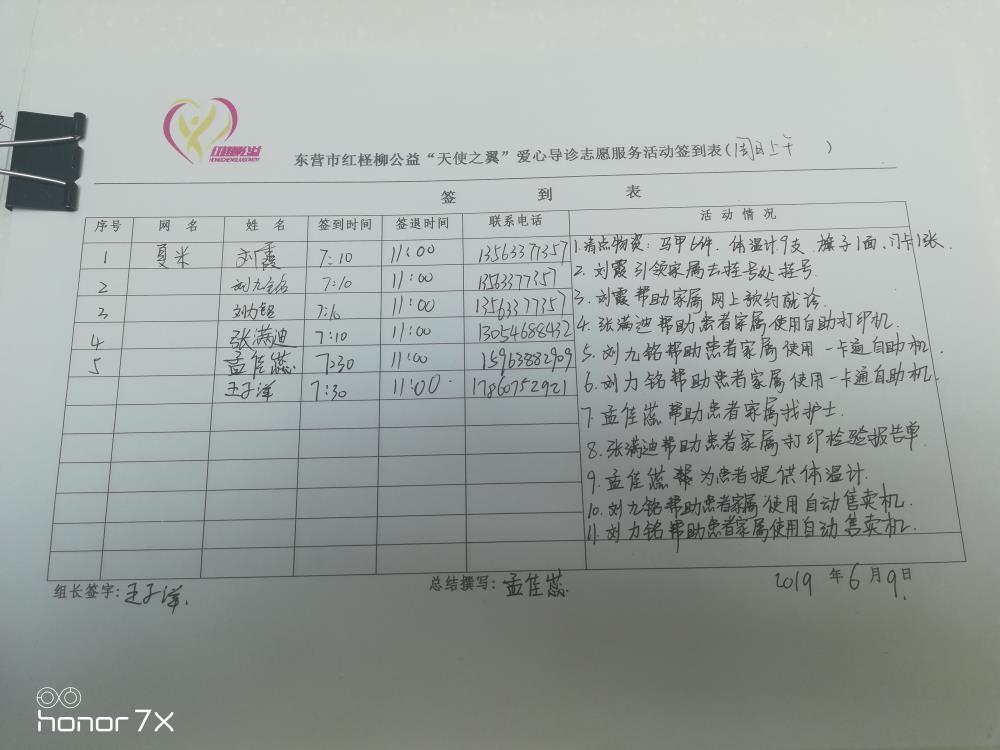 红柽柳公益
东营市红柽柳公益“天使之翼”爱心导诊志愿服务活动签到表(周日上午)
签 到 表
序号 网 名 姓 名 签到时间 签退时间 联系电话 活 动 情 况
1 夏米 刘霞 7:10 11:00 13563377357 1.清点物资:马甲6件、体温计9支 旗子1面、门卡1张
2 刘九铭 7:10 11:00 1356377357 2. 刘霞引领家属去挂号处挂号.
3 刘力铭 11:00 13563377357 3. 刘霞帮助家属网上预约就诊.
4 张满迪 7:10 11:00 13054688432 4. 张满迪帮助患者家属使用自助打印机.
5 孟佳蕊 7:30 11:00 15963882909 5. 刘九铭帮助患者家属使用一卡通自助机.
王子洋 7:30 11:00 17860752921 6. 刘力铭帮助患者家属使用一卡通自助机.
7. 孟佳蕊帮助患者家属找护士.
8. 张满迪帮助患者家属打印检验报告单
9. 孟佳蕊为患者提供体温计.
10. 刘九铭帮助患者家属使用自动售卖机.
11. 刘力铭帮助患者家属使用自动售卖机.
组长签字:王子洋. 总结撰写:孟佳蕊. 2019 年 6 月 9 日
honor 7X